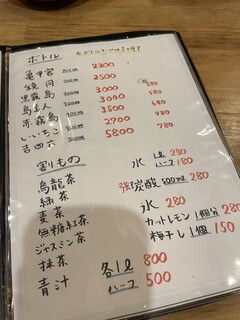 ボトル
亀甲宮 2300
鏡月 2500
黒霧島 3000
島美人 3500
赤霧島
いいちこ 2700 780
吉四六 5800
割りもの
烏龍茶
緑茶
麦茶
無糖紅茶
ジャスミン茶
抹茶
青汁
各1ℓ 800
ハーフ 500
水 1ℓ 280
ハーフ 180
強炭酸 500ml 280
氷 280
カットレモン 1個分 280
梅干し 1個 150